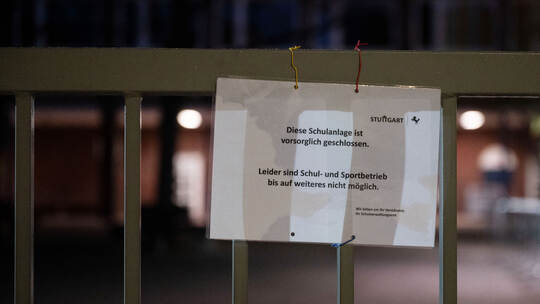 STUTTGART
Diese Schulanlage ist
vorsorglich geschlossen.
Leider sind Schul- und Sportbetrieb
bis auf weiteres nicht möglich.
Wir bitten um Ihr Verständnis
Ihr Schulverwaltungsamt